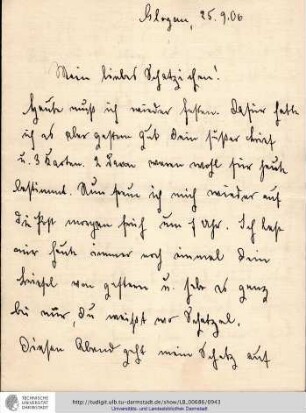 Glogau, 25.9.06
Mein liebes Schatzichen!
Heute muß ich wieder fasten. Dafür hatte
ich es aber gestern gut Dein süßer Brief
u. 3 Karten. 2 davon waren wohl für heute
bestimmt. Nun freu ich mich wieder auf
die Post morgen früh um 7 Uhr. Ich las
mir heute immer noch einmal Dein
Briefel von gestern u. hab es ganz
bei mir, Du weißt wo Schatzel.
Diesen Abend geht mein Schatz auf
TECHNISCHE
UNIVERSITÄT
DARMSTADT
http://tudigit.ulb.tu-darmstadt.de/show/LB_00686/0943
Universitäts- und Landesbibliothek Darmstadt